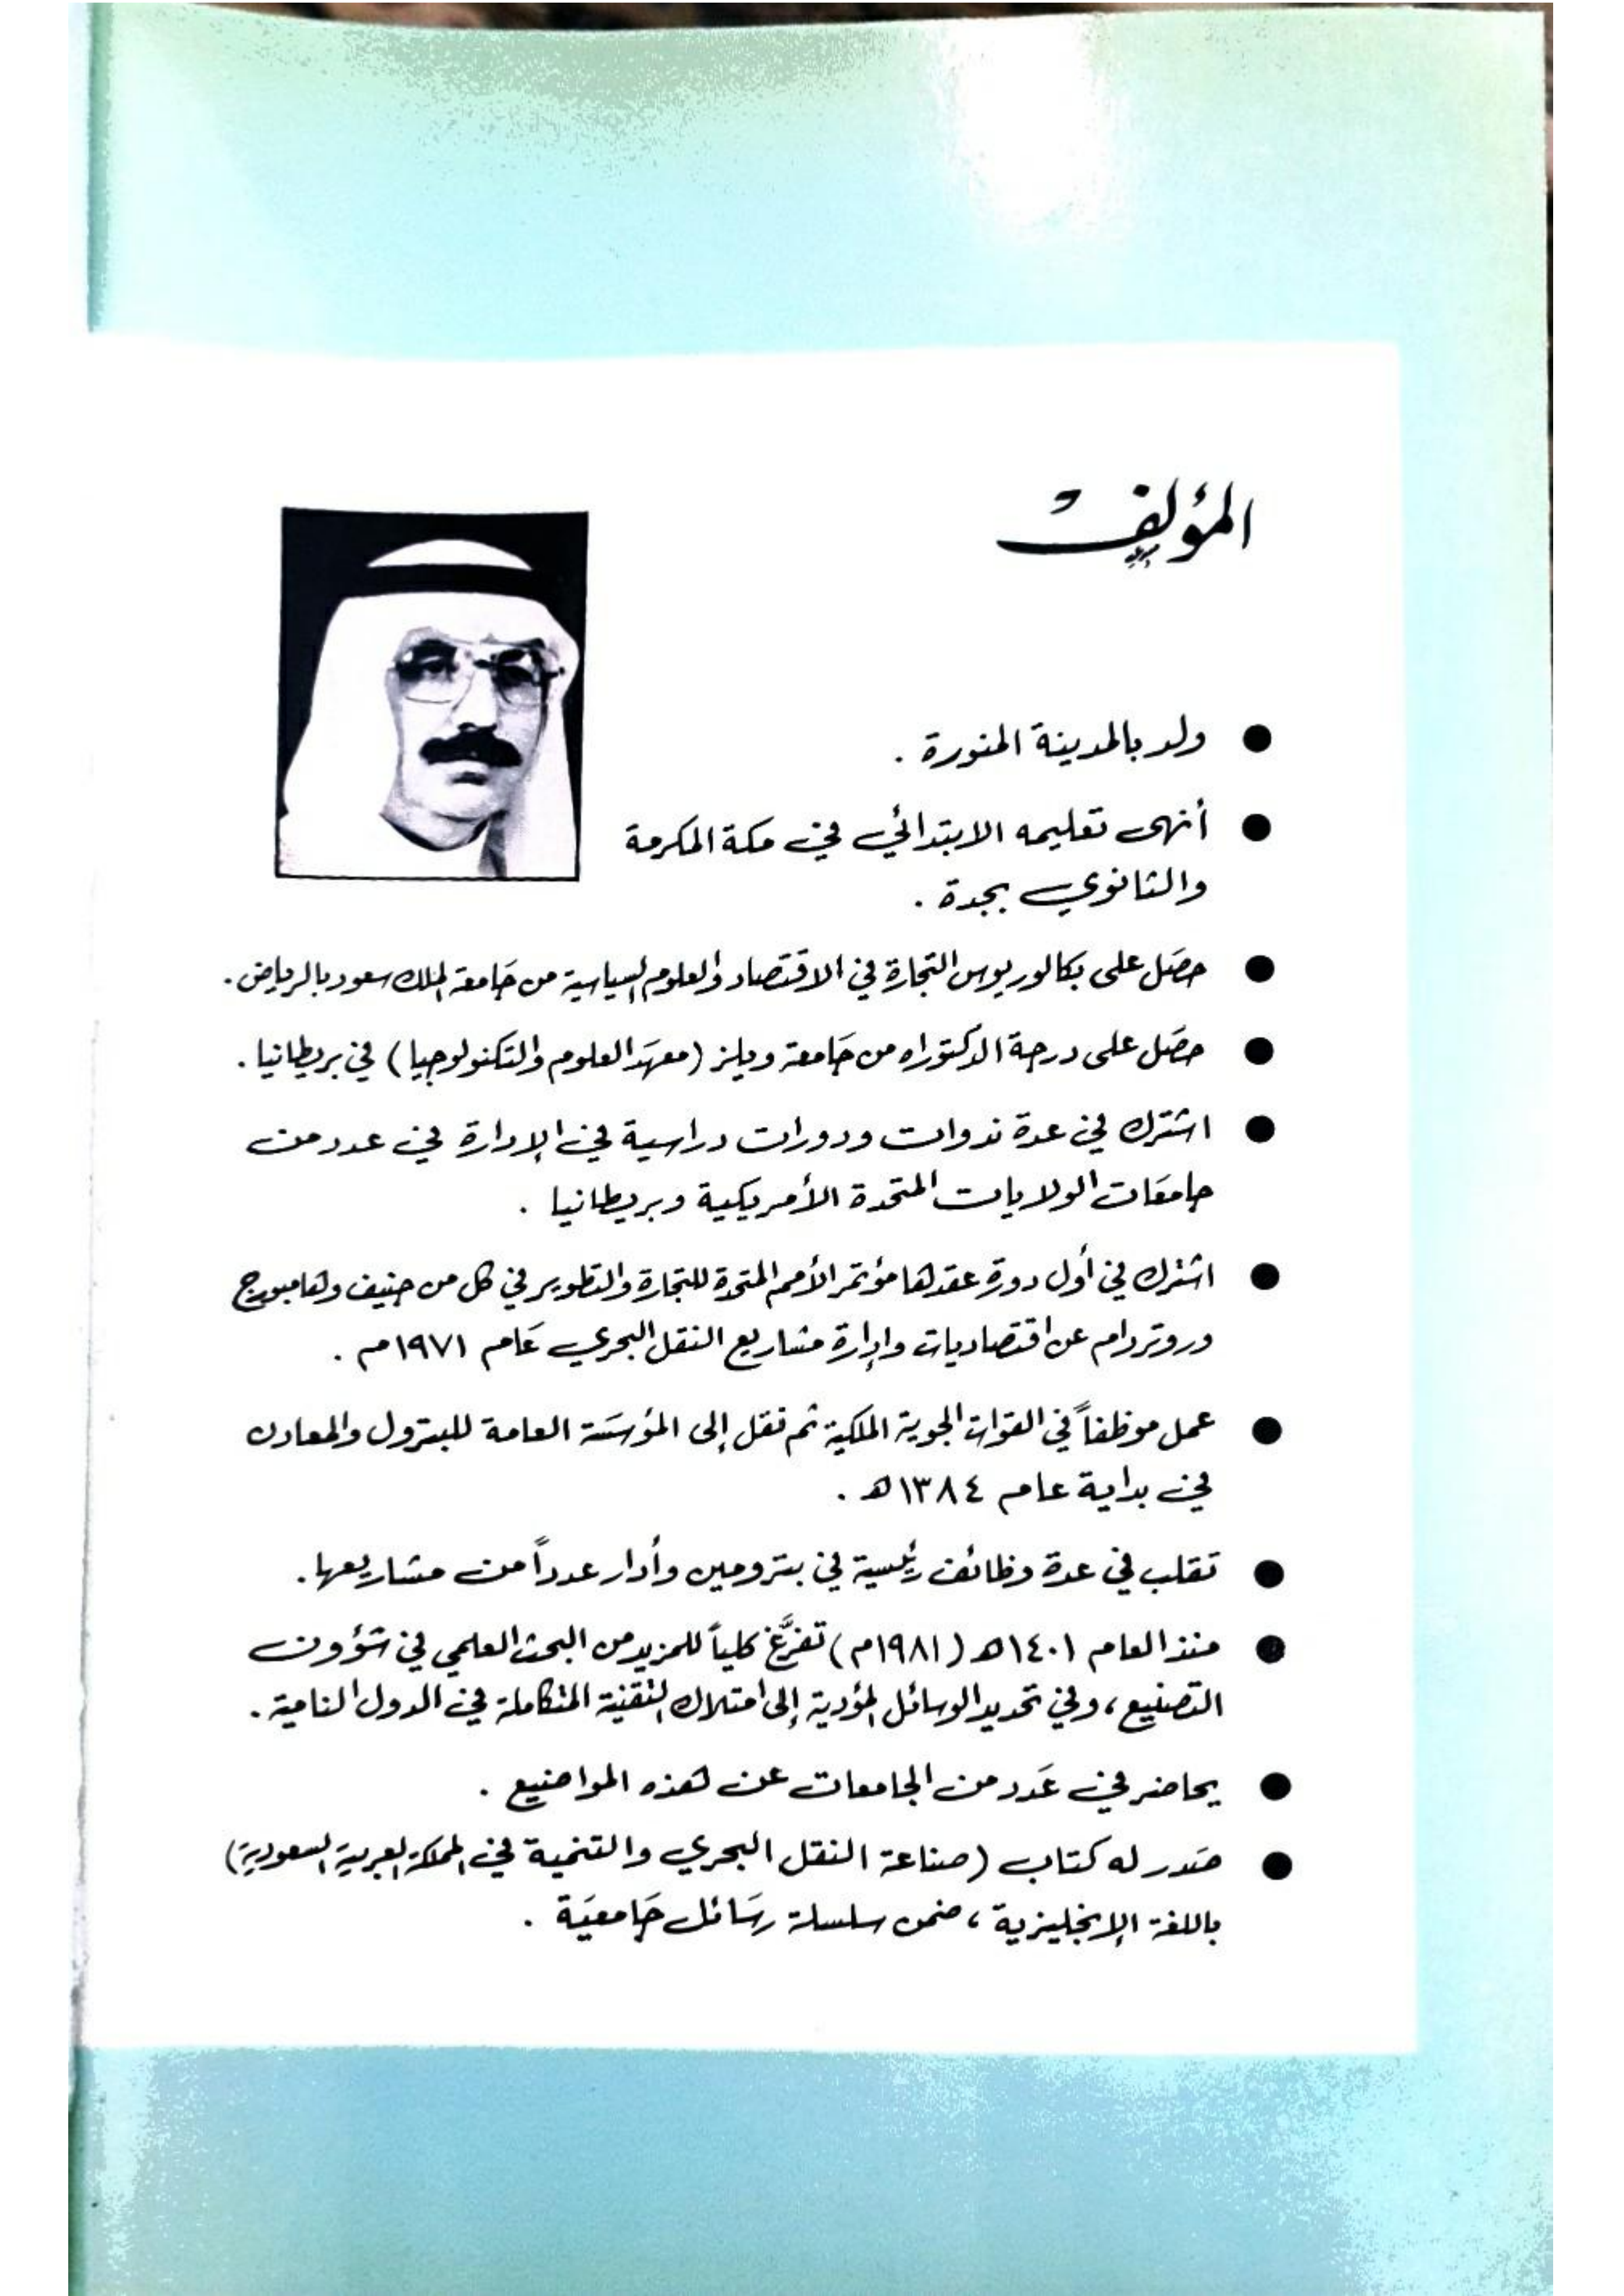 المؤلف
● ولد بالمدينة المنورة .
● أنهى تعليمه الابتدائي في مكة المكرمة
والثانوي بجدة .
● حصَل على بكالوريوس التجارة في الاقتصاد والعلوم السياسية من جَامعة الملك سعود بالرياض .
● حصَل على درجة الدكتوراه من جَامعة ويلز (معهَد العلوم والتكنولوجيا) في بريطانيا .
● اشترك في عدة ندوات ودورات دراسية في الإدارة في عدد من
جامعَات الولايات المتحدة الأمريكية وبريطانيا .
● اشترك في أول دورة عقدها مؤتمر الأمم المتحدة للتجارة والتطوير في كل من جنيف وهامبورج
وروتردام عن اقتصاديات وإدارة مشاريع النقل البحري عَام ١٩٧١م .
● عمل موظفاً في القوات الجوية الملكية ثم نقل إلى المؤسَسَة العامة للبترول والمعادن
في بداية عام ١٣٨٤ه .
● تقلب في عدة وظائف رئيسية في بترومين وأدار عدداً من مشاريعها .
● منذ العام ١٤٠١ه (١٩٨١م) تفرَّغ كلياً للمزيد من البحث العلمي في شؤون
التصنيع ، وفي تحديد الوسائل المؤدية إلى امتلاك التقنية المتكاملة في الدول النامية .
● يحاضر في عَدد من الجامعات عن هذه المواضيع .
● صَدر له كتاب (صناعة النقل البحري والتنمية في المملكة العربية السعودية)
باللغة الإنجليزية ، ضمن سلسلة رسَائل جَامعيَة .